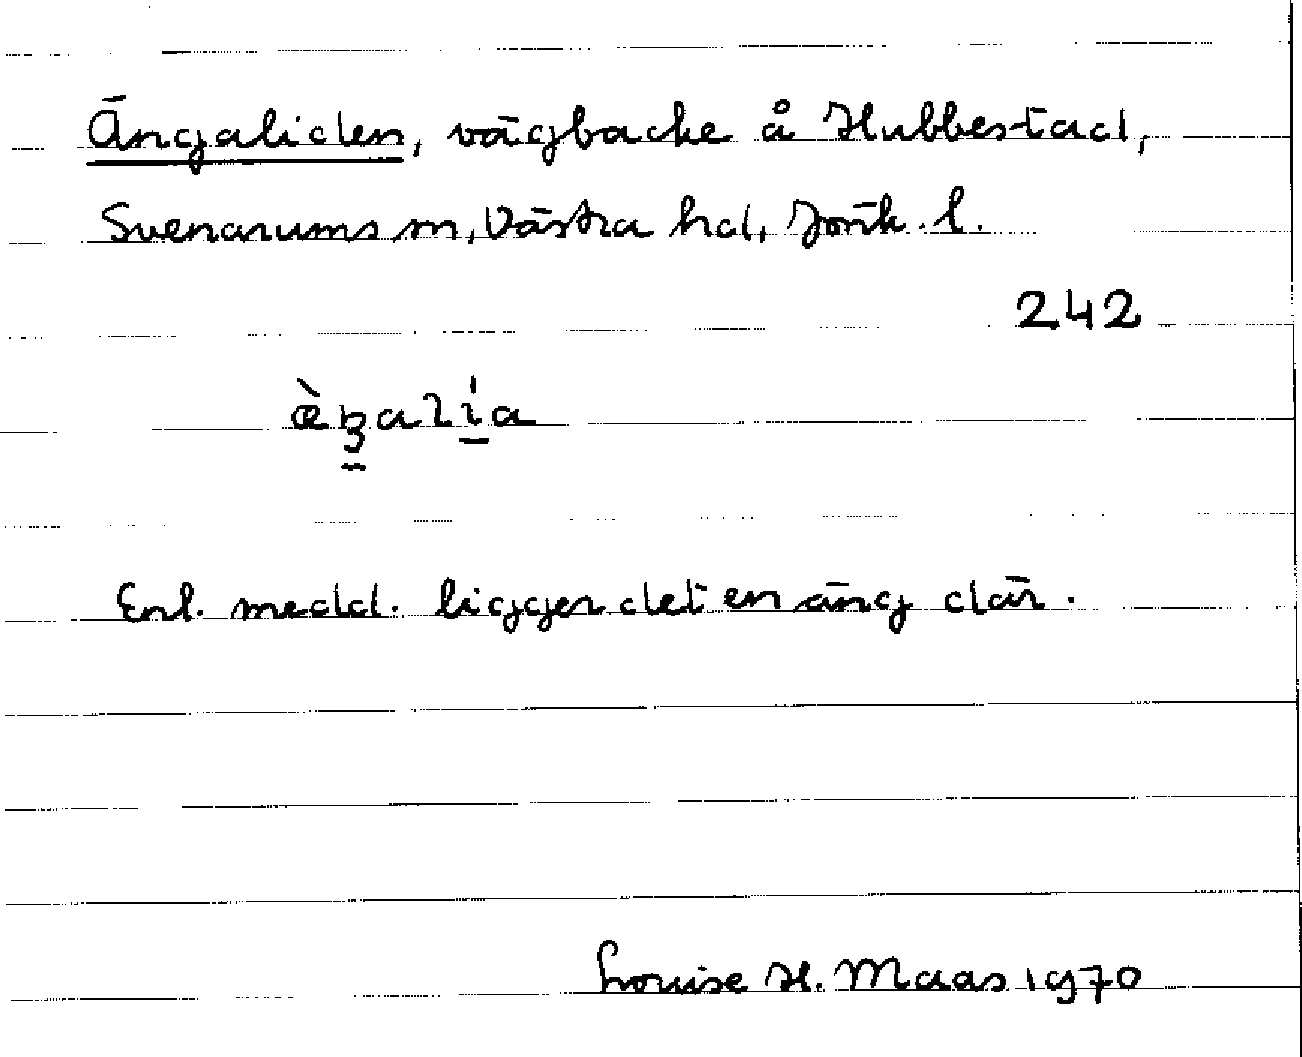 Ängaliden, vägbacke å Hubbestad,
Svenarums sn, Västra hd, Jönk. l.
242
Enl. medd. ligger det en äng där.
Louise H. Maas 1970